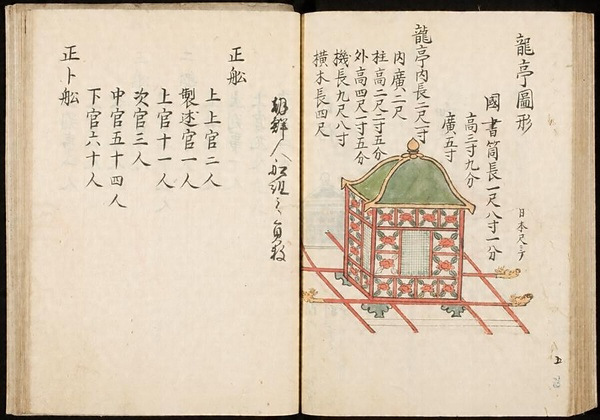 龍亭圖形
日本尺ニテ
國書筒長一尺八寸一分
高三寸九分
廣五寸
龍亭内長二尺一寸
内廣二尺
柱高二尺二寸五分
外高四尺一寸五分
機長九尺八寸
横木長四尺
朝鮮人船組之員数
正舩
上上官二人
製述官一人
上官十一人
次官三人
中官五十四人
下官六十人
正卜舩